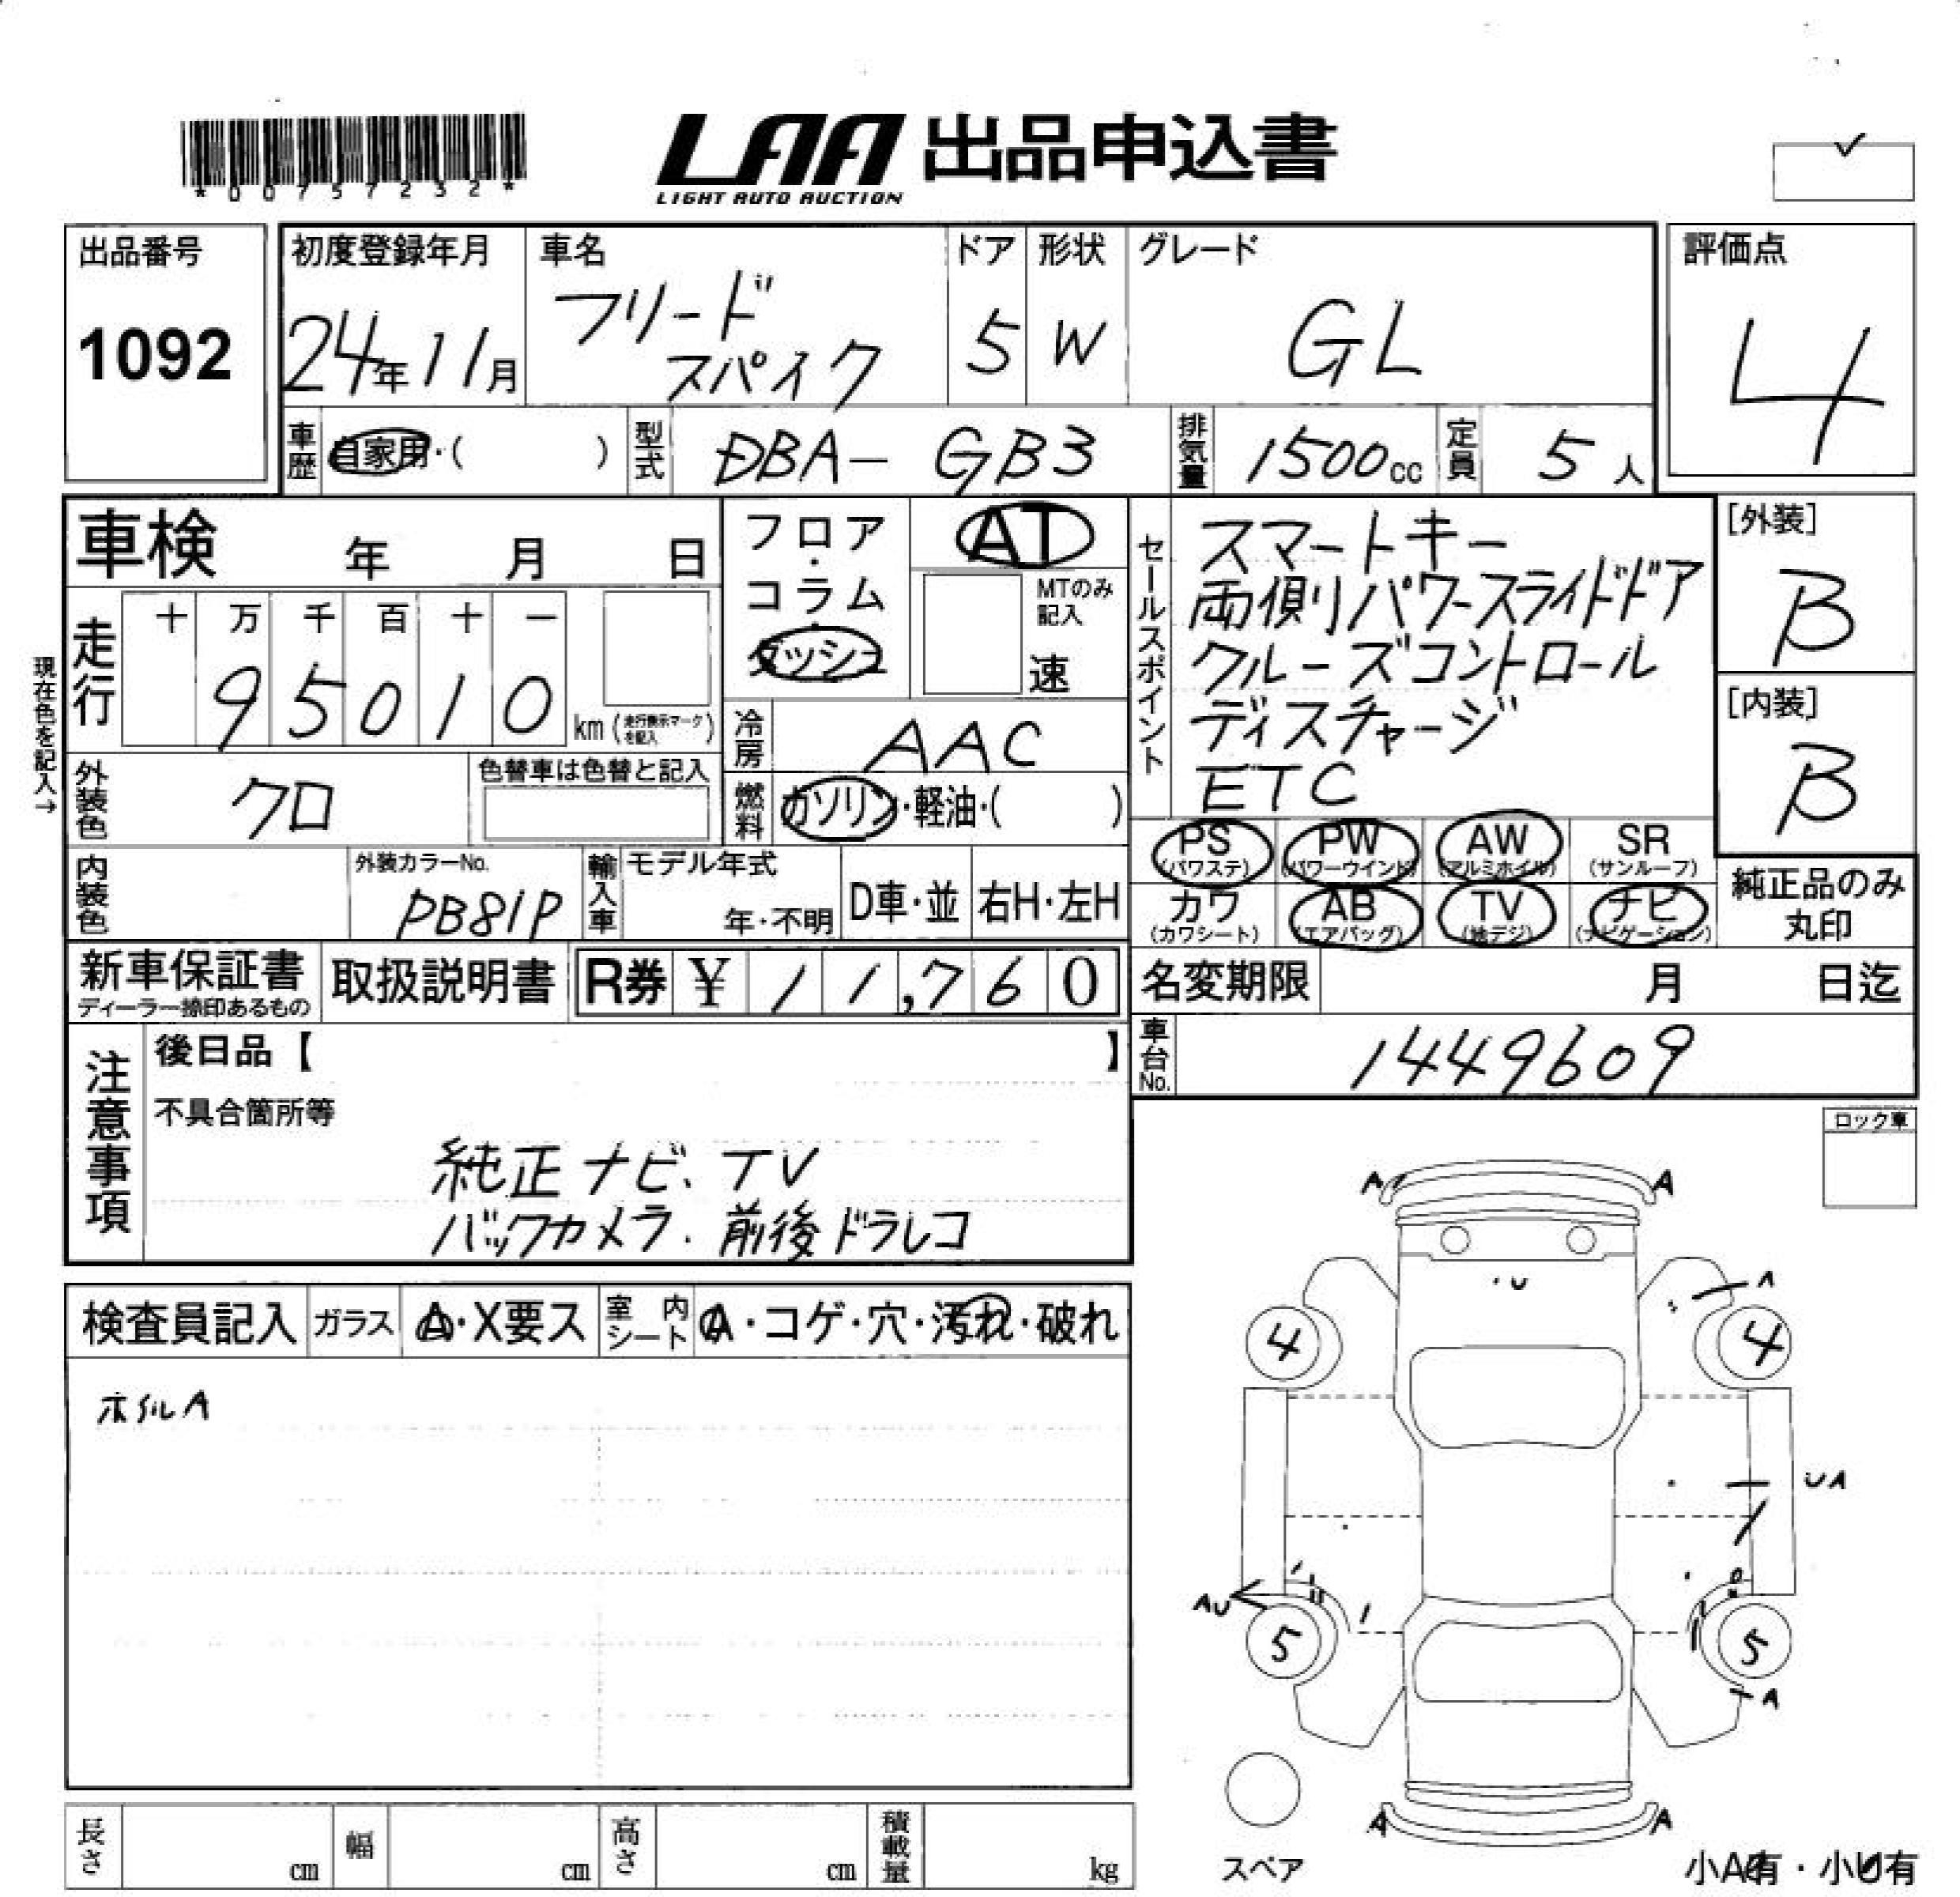 *00757232*
LAA 出品申込書
LIGHT AUTO AUCTION
出品番号
1092
初度登録年月
24年11月
車名
フリード
スパイク
ドア
5
形状
W
グレード
GL
評価点
4
車歴
自家用・( )
型式
DBA- GB3
排気量
1500cc
定員
5人
車検 年 月 日
現在色を記入→
走行
十 万 千 百 十 一
9 5 0 1 0
km(走行表示マークを記入)
フロア
・
コラム
ダッシュ
AT
MTのみ
記入
速
冷房
AAC
燃料
ガソリン・軽油・( )
外装色
クロ
色替車は色替と記入
内装色
外装カラーNo.
PB81P
輸入車
モデル年式
年・不明
D車・並
右H・左H
セールスポイント
スマートキー
両側パワースライドドア
クルーズコントロール
ディスチャージ
ETC
[外装]
B
[内装]
B
PS
(パワステ)
PW
(パワーウインド)
AW
(アルミホイル)
SR
(サンルーフ)
カワ
(カワシート)
AB
(エアバッグ)
TV
(地デジ)
ナビ
(ナビゲーション)
純正品のみ
丸印
新車保証書
ディーラー捺印あるもの
取扱説明書
R券 ¥ 11,760
名変期限 月 日迄
車台No.
1449609
注意事項
後日品【 】
不具合箇所等
純正ナビ、TV
バックカメラ. 前後ドラレコ
ロック車
検査員記入
ガラス
A・X要ス
室内シート
A・コゲ・穴・汚れ・破れ
ホイルA
A A
U
A
4 4
UA
AU
5 5
A
A A
スペア
長さ cm
幅 cm
高さ cm
積載量 kg
小A有・小U有